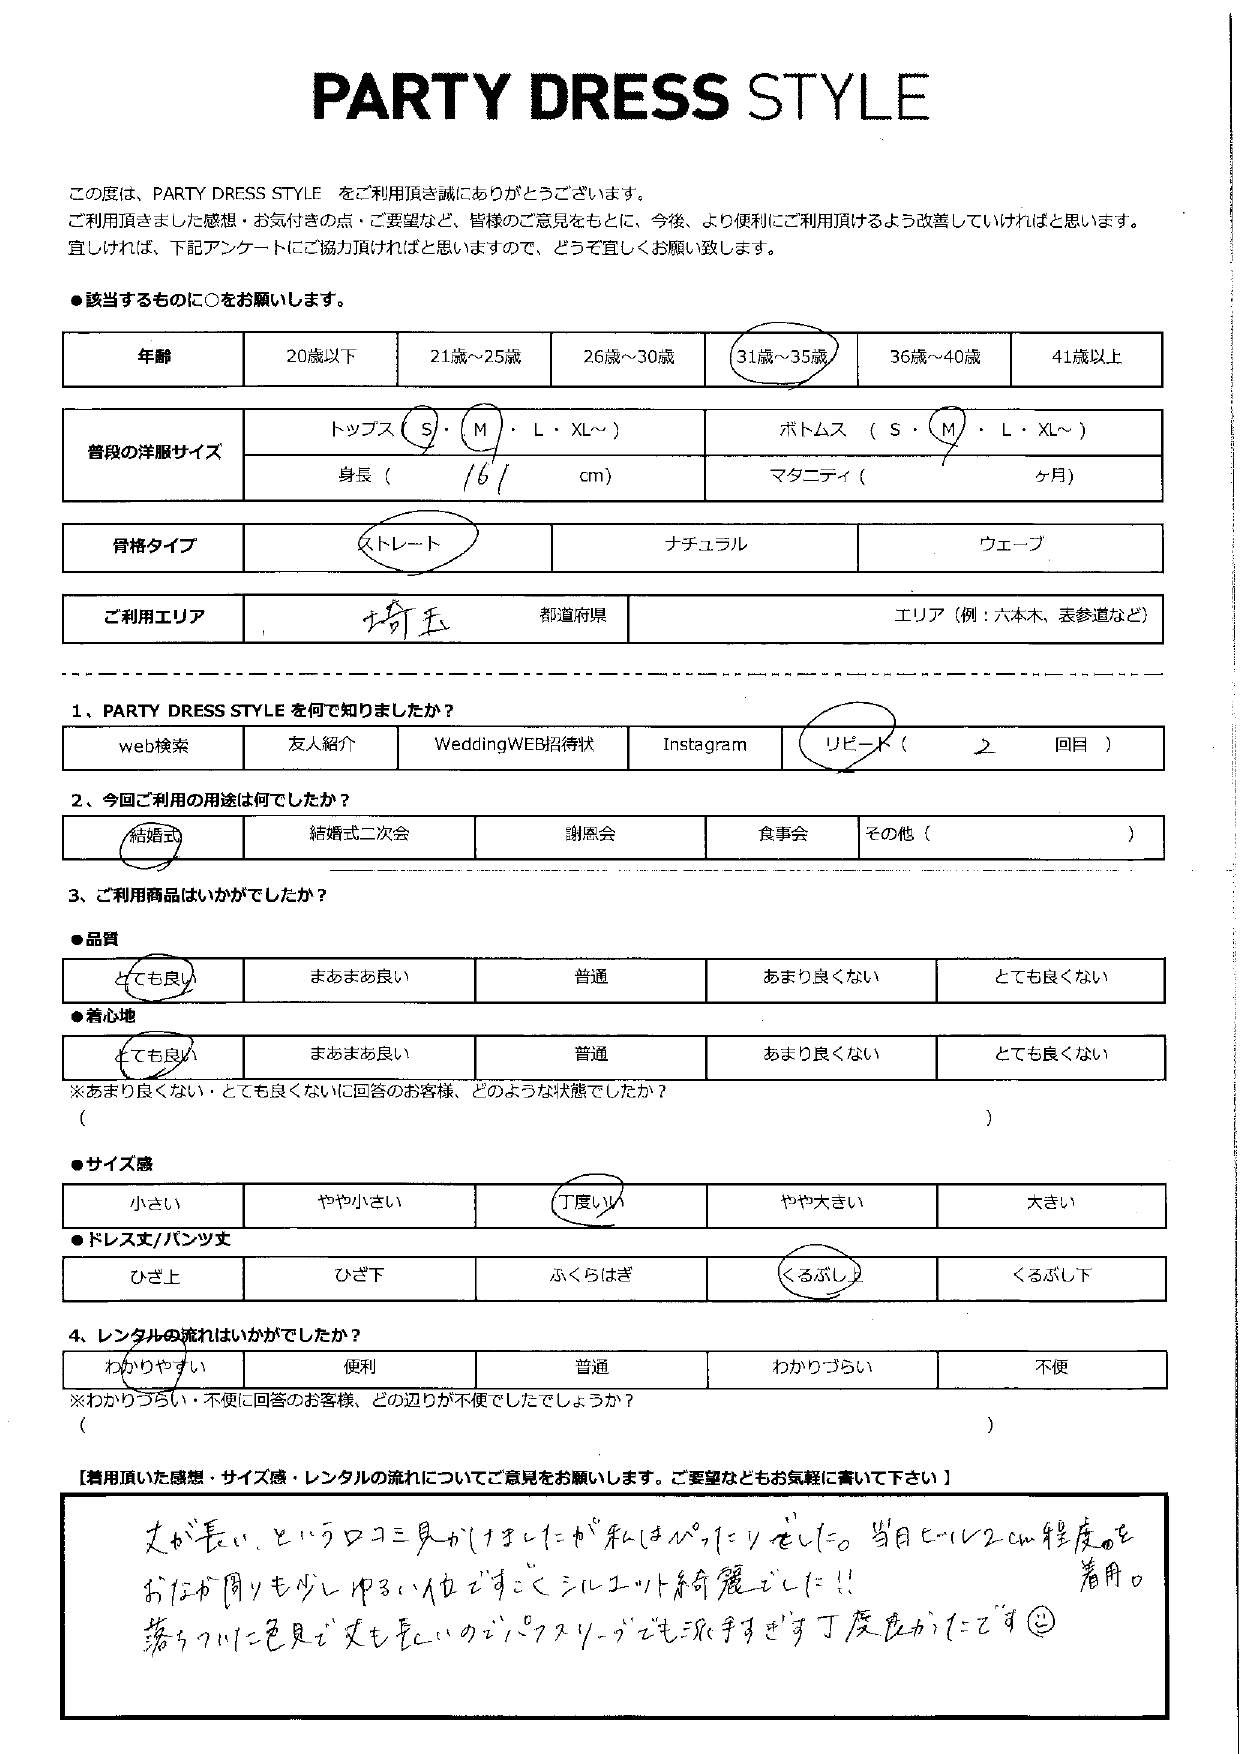 PARTY DRESS STYLE
この度は、PARTY DRESS STYLE　をご利用頂き誠にありがとうございます。
ご利用頂きました感想・お気付きの点・ご要望など、皆様のご意見をもとに、今後、より便利にご利用頂けるよう改善していければと思います。
宜しければ、下記アンケートにご協力頂ければと思いますので、どうぞ宜しくお願い致します。
●該当するものに〇をお願いします。
年齢 20歳以下 21歳～25歳 26歳～30歳 31歳～35歳 36歳～40歳 41歳以上
普段の洋服サイズ トップス ( S ・ M ・ L ・ XL～ ) ボトムス ( S ・ M ・ L ・ XL～ )
身長 ( 161 cm) マタニティ ( ヶ月)
骨格タイプ ストレート ナチュラル ウェーブ
ご利用エリア 埼玉 都道府県 エリア（例：六本木、表参道など）
1、PARTY DRESS STYLE を何で知りましたか？
web検索 友人紹介 WeddingWEB招待状 Instagram リピート ( 2 回目 )
2、今回ご利用の用途は何でしたか？
結婚式 結婚式二次会 謝恩会 食事会 その他 ( )
3、ご利用商品はいかがでしたか？
●品質
とても良い まあまあ良い 普通 あまり良くない とても良くない
●着心地
とても良い まあまあ良い 普通 あまり良くない とても良くない
※あまり良くない・とても良くないに回答のお客様、どのような状態でしたか？
( )
●サイズ感
小さい やや小さい 丁度いい やや大きい 大きい
●ドレス丈/パンツ丈
ひざ上 ひざ下 ふくらはぎ くるぶし上 くるぶし下
4、レンタルの流れはいかがでしたか？
わかりやすい 便利 普通 わかりづらい 不便
※わかりづらい・不便に回答のお客様、どの辺りが不便でしたでしょうか？
( )
【着用頂いた感想・サイズ感・レンタルの流れについてご意見をお願いします。ご要望などもお気軽に書いて下さい 】
丈が長い、という口コミ見かけましたが私はぴったりでした。当日ヒール2cm程度を
着用。
おなか周りも少しゆるい位ですごくシルエット綺麗でした!!
落ちついた色見で丈も長いのでパフスリーブでも派手すぎず丁度良かったです☺